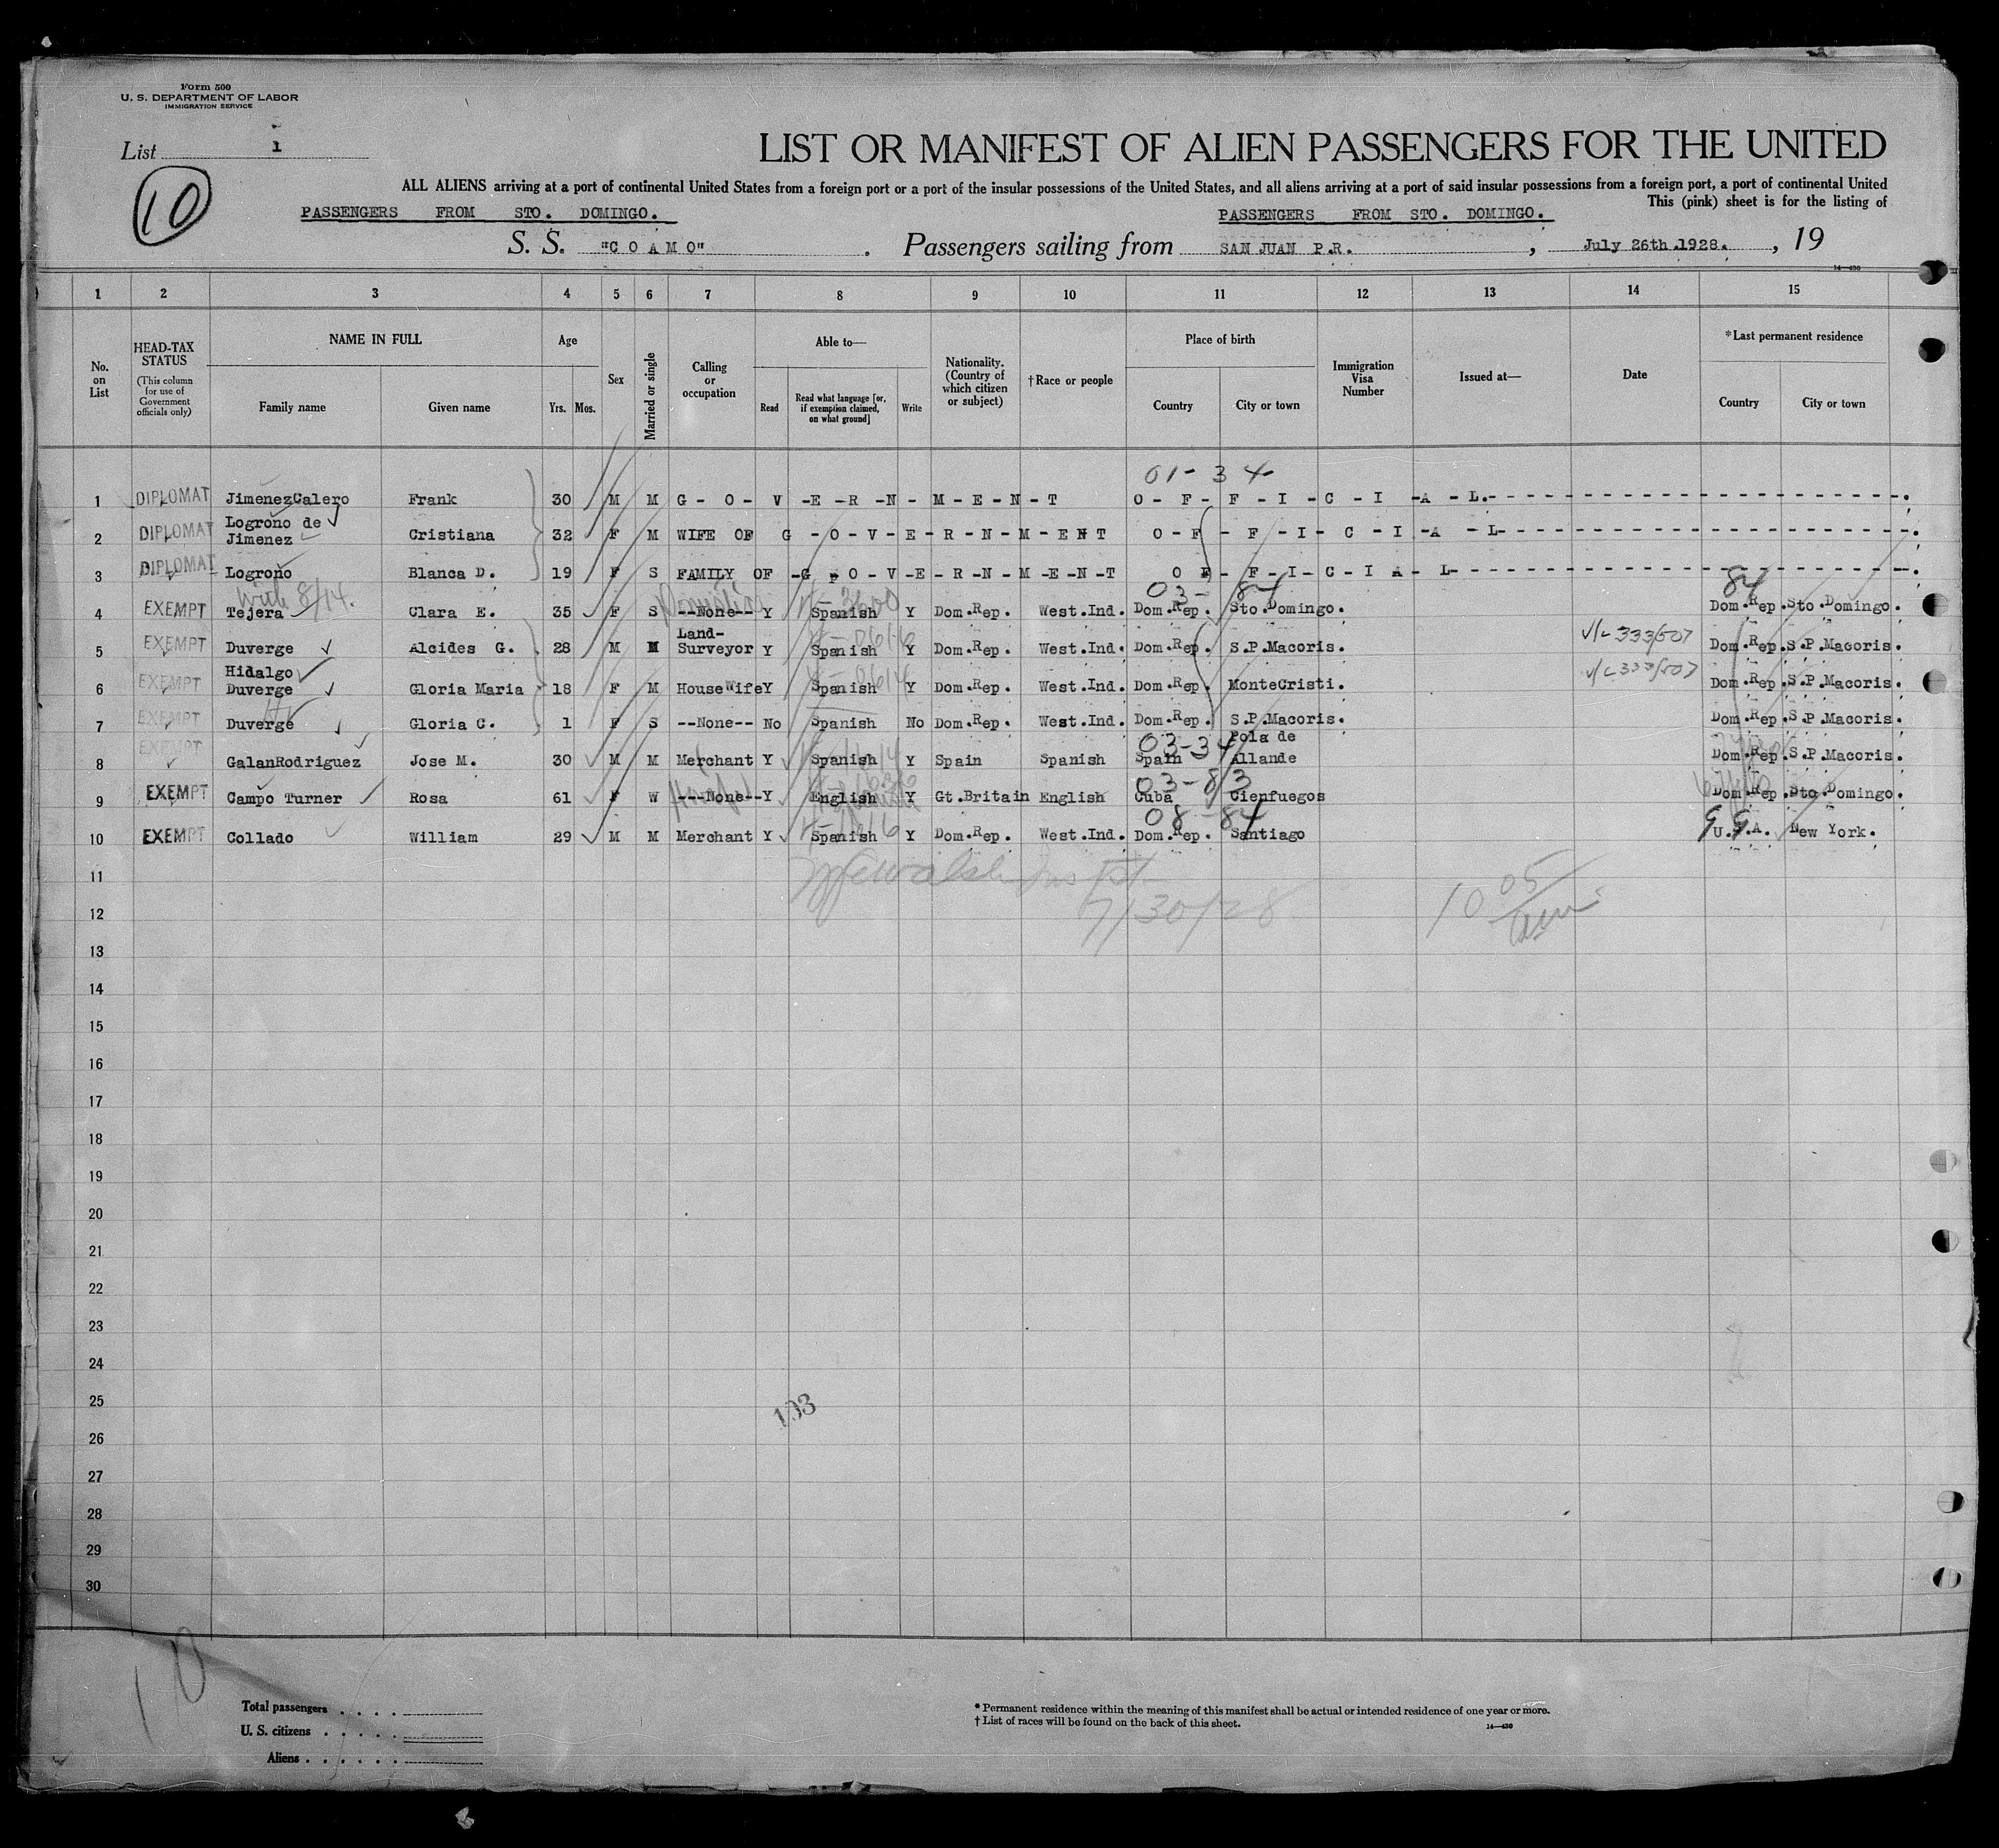 Form 500
U. S. DEPARTMENT OF LABOR
IMMIGRATION SERVICE
List 1
10
LIST OR MANIFEST OF ALIEN PASSENGERS FOR THE UNITED
ALL ALIENS arriving at a port of continental United States from a foreign port or a port of the insular possessions of the United States, and all aliens arriving at a port of said insular possessions from a foreign port, a port of continental United
This (pink) sheet is for the listing of
PASSENGERS FROM STO. DOMINGO. PASSENGERS FROM STO. DOMINGO.
S. S. "C O A M O" . Passengers sailing from SAN JUAN P.R. , July 26th.1928. , 19
14—430
1 2 3 4 5 6 7 8 9 10 11 12 13 14 15
No. on List
HEAD-TAX STATUS
(This column for use of Government officials only)
NAME IN FULL
Family name Given name
Age
Yrs. Mos.
Sex
Married or single
Calling or occupation
Able to—
Read Read what language [or, if exemption claimed, on what ground] Write
Nationality. (Country of which citizen or subject)
†Race or people
Place of birth
Country City or town
Immigration Visa Number
Issued at—
Date
*Last permanent residence
Country City or town
01-34
1 DIPLOMAT JimenezCalero Frank 30 M M G - O - V -E -R -N- M -E -N -T O - F - F - I - C - I -A - L.- - - - - - - - - -.
Logroño de
2 DIPLOMAT Jimenez Cristiana 32 F M WIFE OF G -O -V -E -R -N -M -ENT O -F - F -I - C - I -A - L- - - - - - - - - -.
3 DIPLOMAT Logroño Blanca D. 19 F S FAMILY OF -G -O -V -E -R -N -M -E -N -T O F - F -I -C -I A - L- - - - - - - - - -.
With 8/14. 03- 84 84
4 EXEMPT Tejera Clara E. 35 F S --None-- Y Spanish Y Dom.Rep. West.Ind. Dom.Rep. Sto.Domingo. Dom.Rep.Sto.Domingo.
Land-
5 EXEMPT Duverge Alcides G. 28 M M Surveyor Y Spanish Y Dom.Rep. West.Ind. Dom.Rep. S.P.Macoris. V/L-333/507 Dom.Rep.S.P.Macoris.
Hidalgo
6 EXEMPT Duverge Gloria Maria 18 F M HouseWife Y Spanish Y Dom.Rep. West.Ind. Dom.Rep. MonteCristi. V/L333/507 Dom.Rep.S.P.Macoris.
7 EXEMPT Duverge Gloria C. 1 F S --None-- No Spanish No Dom.Rep. West.Ind. Dom.Rep. S.P.Macoris. Dom.Rep.S.P.Macoris.
03-34 Pola de
8 EXEMPT GalanRodriguez Jose M. 30 M M Merchant Y Spanish Y Spain Spanish Spain Allande Dom.Rep.S.P.Macoris.
03-83
9 EXEMPT Campo Turner Rosa 61 F W ---None-- Y English Y Gt.Britain English Cuba Cienfuegos Dom.Rep.Sto.Domingo.
08-84
10 EXEMPT Collado William 29 M M Merchant Y Spanish Y Dom.Rep. West.Ind. Dom.Rep. Santiago U.S.A. New York.
11
7/30/28
10 05
12
13
14
15
16
17
18
19
20
21
22
23
24
25
103
26
27
28
29
30
10
Total passengers . . . .
U. S. citizens . . . . .
Aliens . . . . . .
* Permanent residence within the meaning of this manifest shall be actual or intended residence of one year or more.
† List of races will be found on the back of this sheet.
14—430